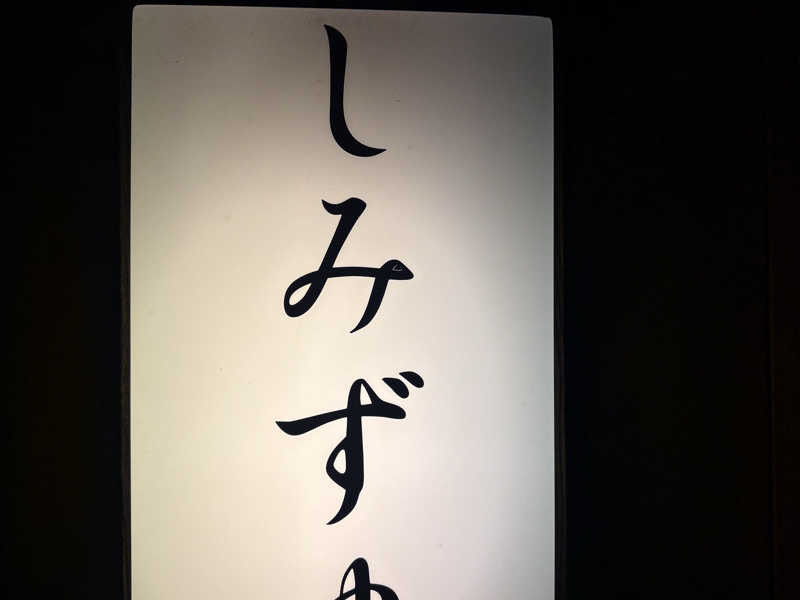 しみず